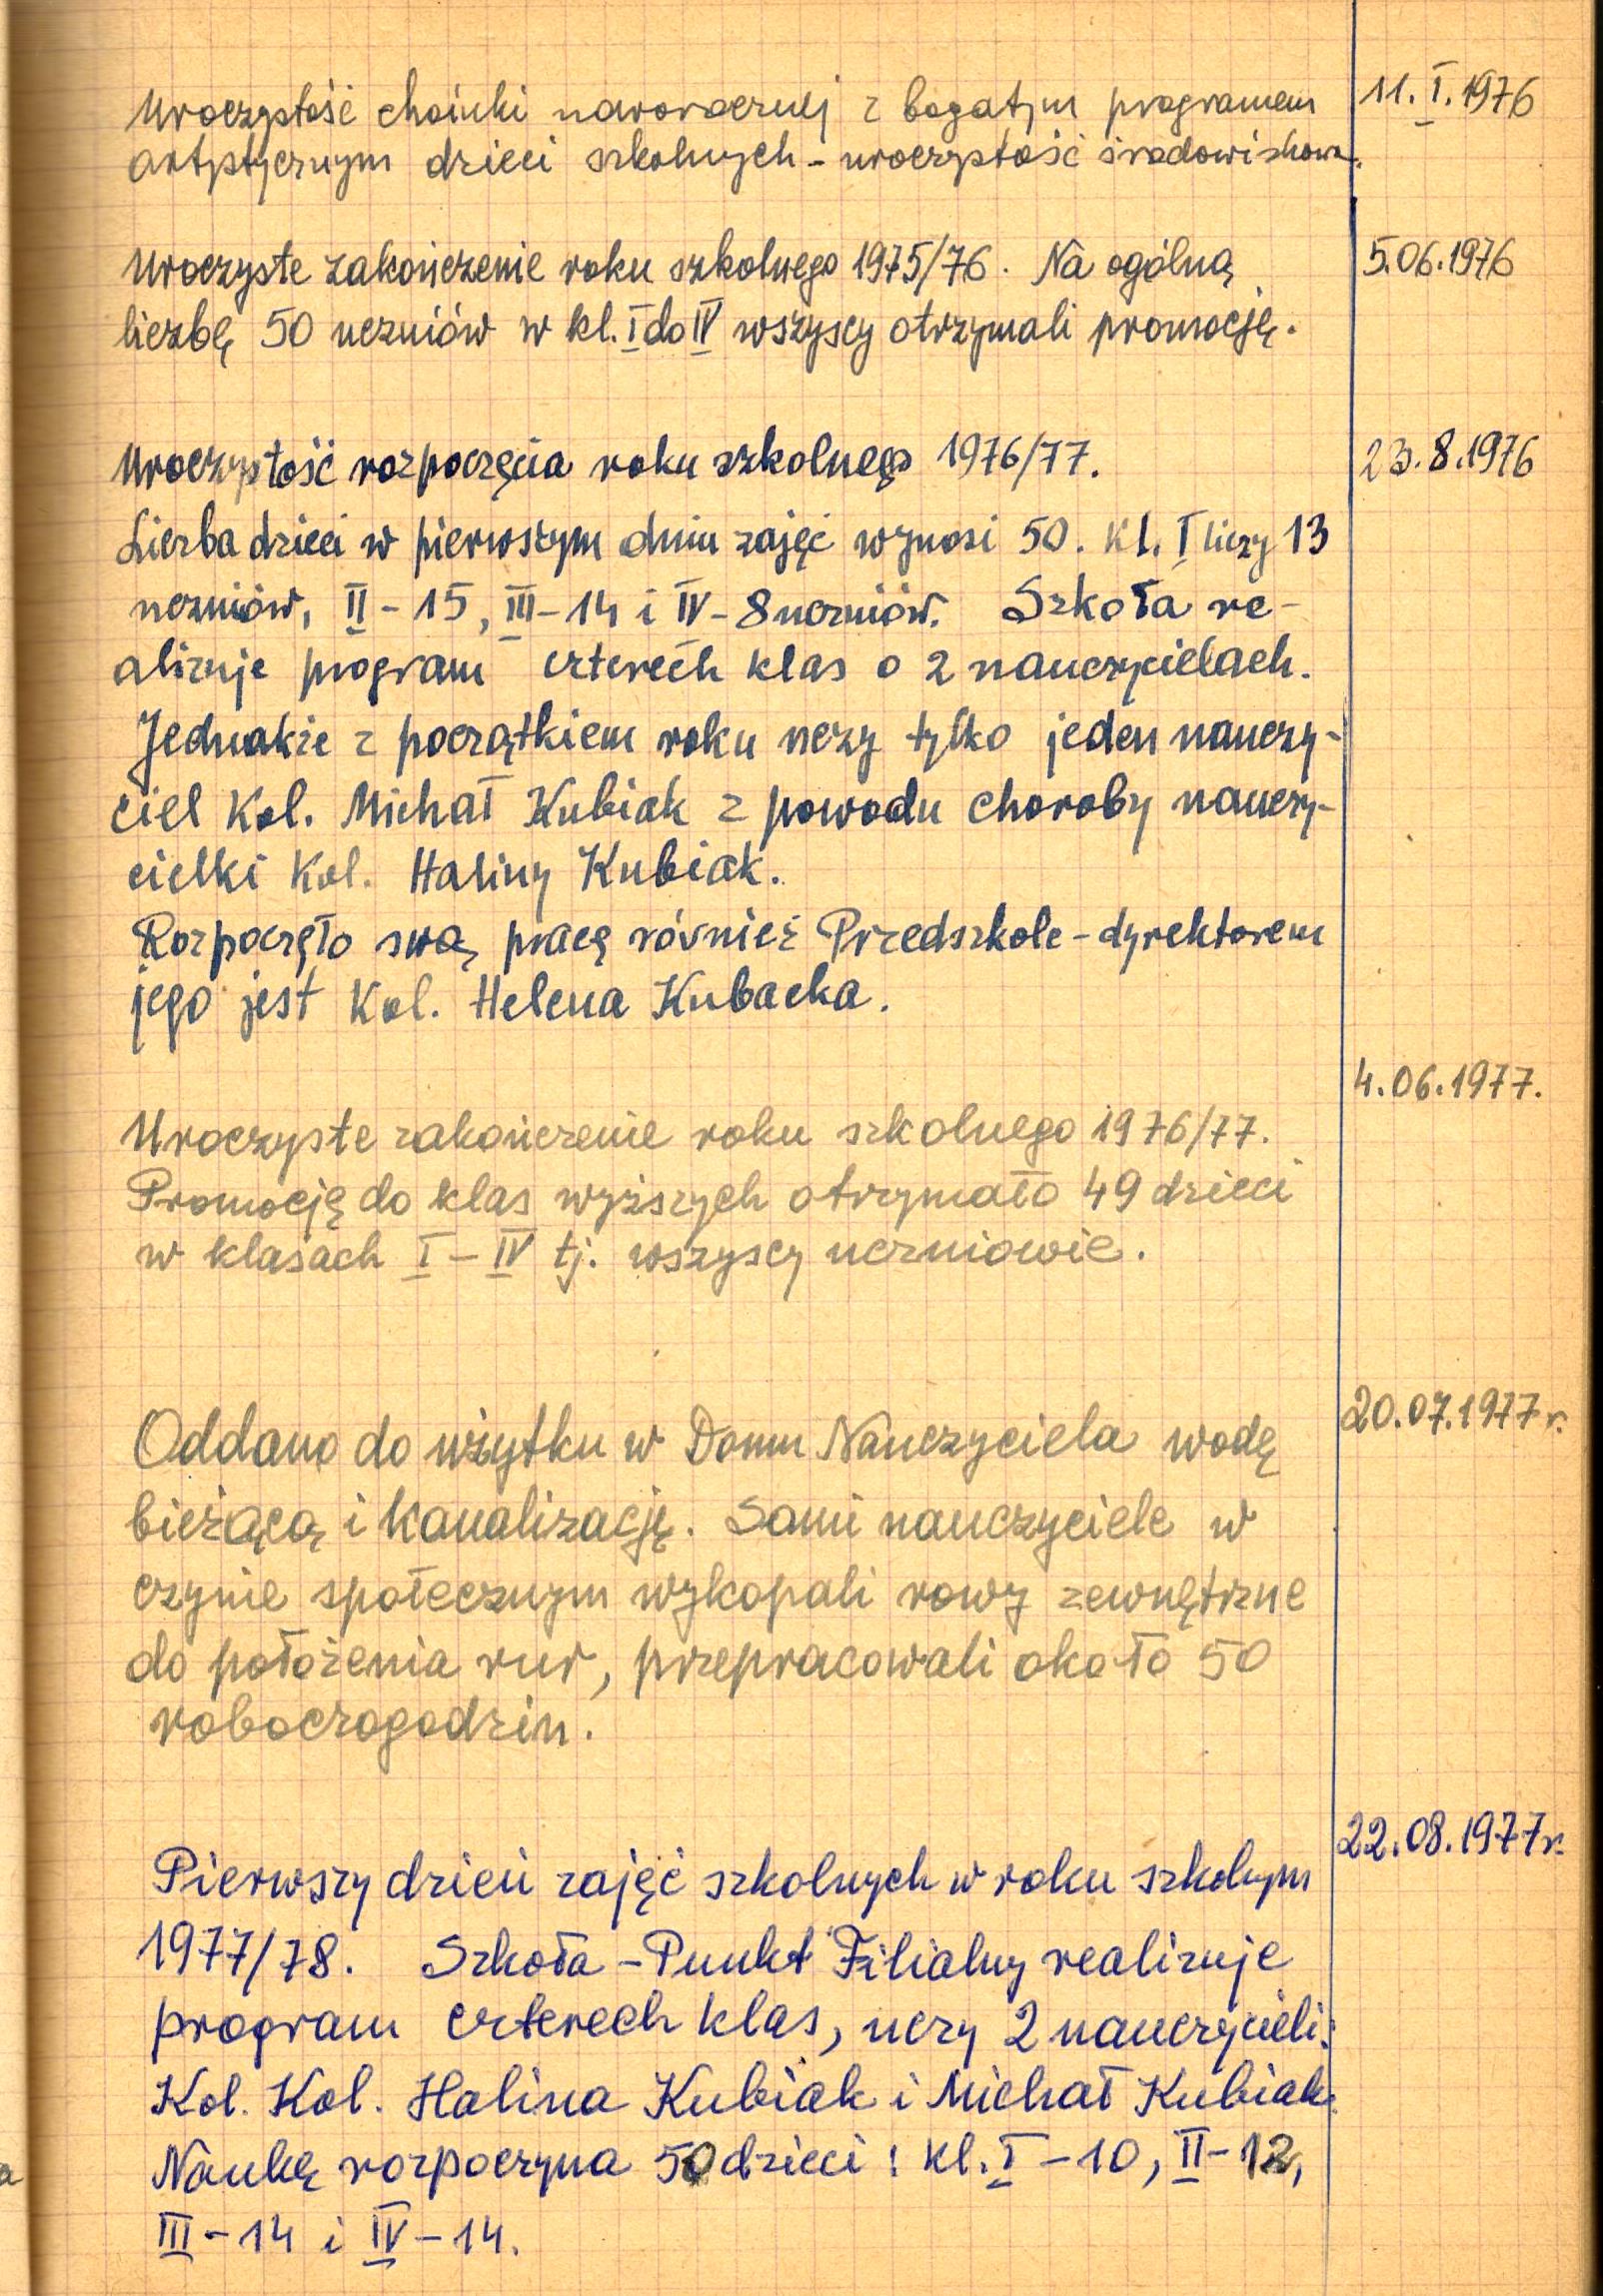 Uroczystość choinki noworocznej z bogatym programem
artystycznym dzieci szkolnych - uroczystość środowiskowa.
11. I. 1976
Uroczyste zakończenie roku szkolnego 1975/76. Na ogólną
liczbę 50 uczniów w kl. I do IV wszyscy otrzymali promocję.
5.06.1976
Uroczystość rozpoczęcia roku szkolnego 1976/77.
23.8.1976
Liczba dzieci w pierwszym dniu zajęć wynosi 50. Kl. I liczy 13
uczniów, II - 15, III - 14 i IV - 8 uczniów. Szkoła re-
alizuje program czterech klas o 2 nauczycielach.
Jednakże z początkiem roku uczy tylko jeden nauczy-
ciel Kol. Michał Kubiak z powodu choroby nauczy-
cielki Kol. Haliny Kubiak.
Rozpoczęło swą pracę również Przedszkole - dyrektorem
jego jest Kol. Helena Kubacka.
4.06.1977.
Uroczyste zakończenie roku szkolnego 1976/77.
Promocję do klas wyższych otrzymało 49 dzieci
w klasach I - IV tj. wszyscy uczniowie.
20.07.1977 r.
Oddano do użytku w Domu Nauczyciela wodę
bieżącą i kanalizację. Sami nauczyciele w
czynie społecznym wykopali rowy zewnętrzne
do położenia rur, przepracowali około 50
roboczogodzin.
22.08.1977 r.
Pierwszy dzień zajęć szkolnych w roku szkolnym
1977/78. Szkoła - Punkt Filialny realizuje
program czterech klas, uczy 2 nauczycieli:
Kol. Kol. Halina Kubiak i Michał Kubiak.
Naukę rozpoczyna 50 dzieci: kl. I - 10, II - 12,
III - 14 i IV - 14.